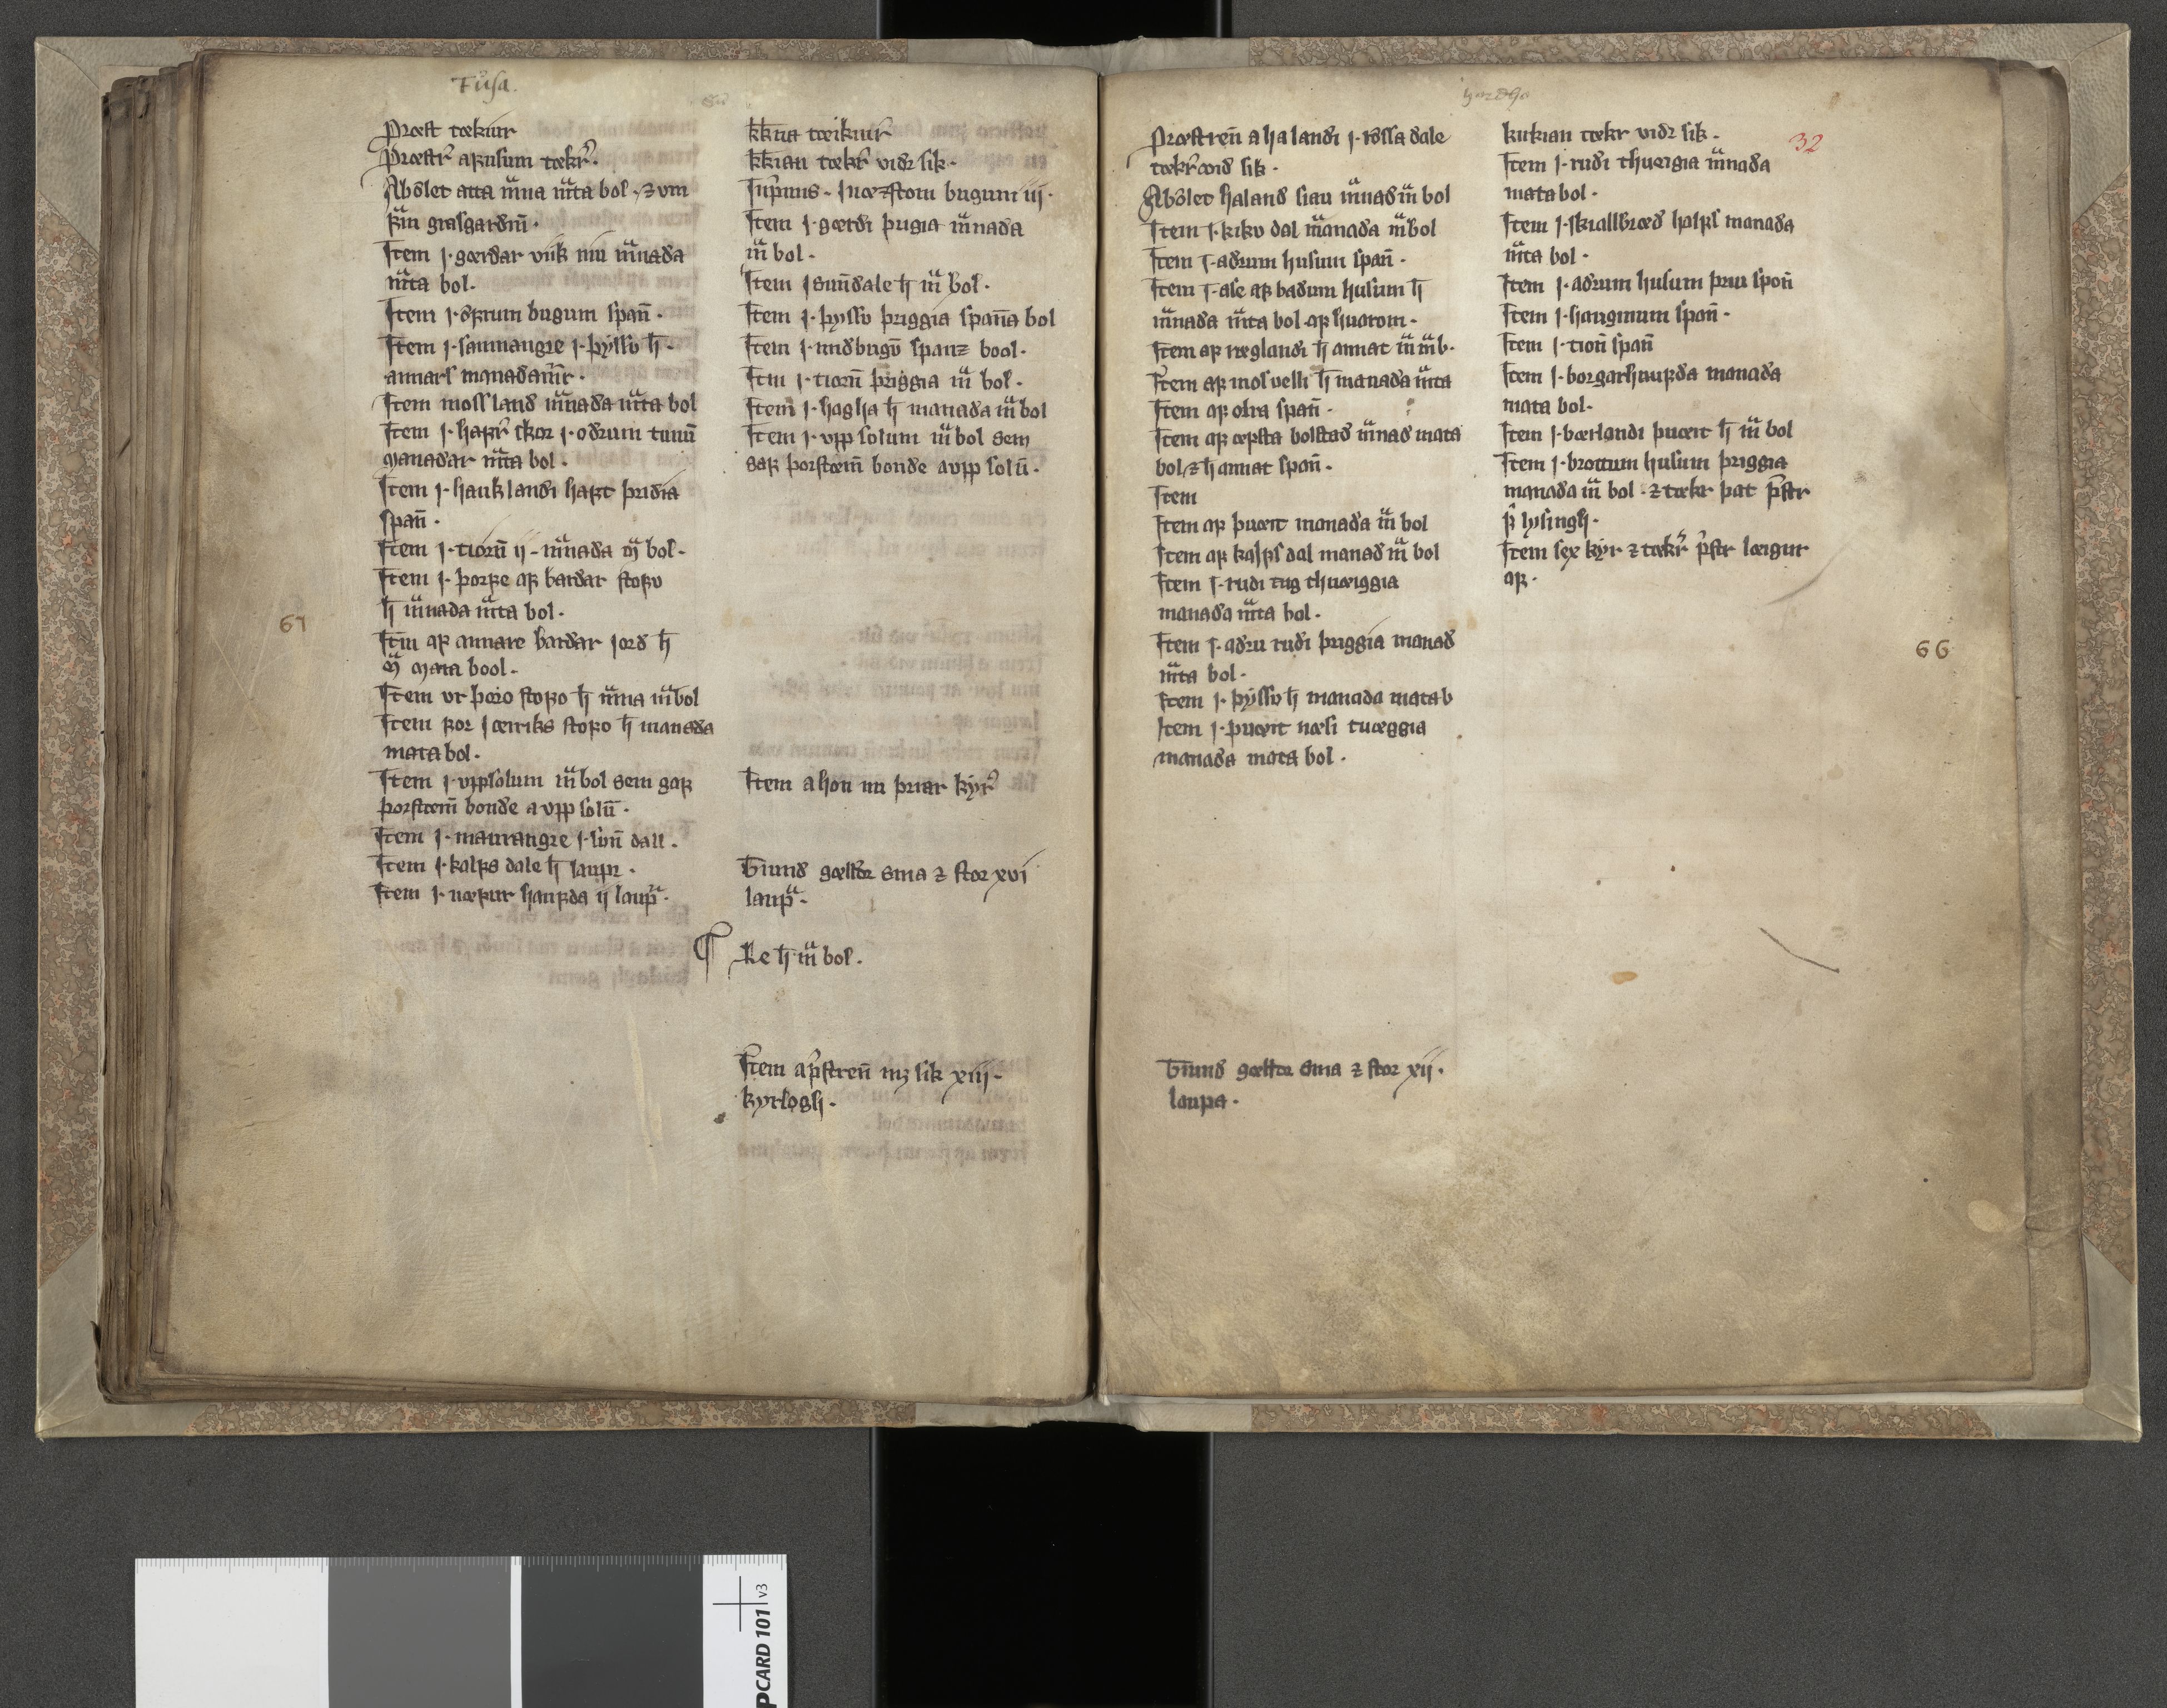 Fusa.
Præst tækiur
Præstr aꝼusum tækr.
Abolet atta mna mta bol. ⁊ vm
ꝼm grasgardm.
Item j. gærdar viik niu mnada
mta bol.
Item j. oꝼrum bugum span.
Item j. saumangre j. þysso h.
annars manada mr.
Item mossland mnada mta bol
Item j. haꝼr skor j. odrum tunū
manadar mta bol.
Item j. hauklandi haꝼt þridia
span.
Item j. tiorn ij. mnada m bol.
Item j. þorꝼe aꝼ bardar stoꝼo
h mnada mta bol.
Itm aꝼ annare bardar jord h
m mata bool.
Item vr þoro stoꝼo h mna m bol
Item ꝼor jæenriks stoꝼo h manada
mata bol.
Item j. vppsolum m bol sem gaꝼ
þorstem bonde a vpp solū.
Item j. maurangre j. sun dall.
Item j. kalꝼs dale h laupr.
Item j. næꝼur hauꝼda ij laup.
67
kkna tæikiur
kkian tækr vidr sik.
Inprimis. j næzstom bugum iij.
Item j. gærdi þrigia mnada
m bol.
Item j sundale h m bol.
Item j. þysso þriggia spanna bol
Item j. midbugū spanz bool.
Itm j. tiorn þriggia m bol.
Item j. hagha h manada m bol
Item j. vpp solum m bol sem
gaꝼ þorstæin bonde a vpp solū.
Item a hon nu þriar kyr
Grund gælldr sma ⁊ stor xvi
laup.
¶ Re h m bol.
Item a pstren mz sik xiij.
kyrlogh.
hordha
Præstren a halandi j. rossa dale
tækr vid sik.
Abolet haland siau mnad m bol
Item j. kiko dal manada m bol
Item j. adrum husum span.
Item j. ase aꝼ badum husum h
mnada mta bol aꝼ huarom.
Item aꝼ næglandi h annat m m b.
Item aꝼ mosuelli h manada mta
Item aꝼ olra span.
Item aꝼ æꝼsta bolstad mnad mata
bol ⁊ h annat span.
Item
Item aꝼ þuæit manada m bol
Item aꝼ kalꝼsdal manad m bol
Item j. rudi tug thuæiggia
manada mta bol.
Item j. adru rudi þriggia manad
mta bol.
Item j. þysso h manada mata b
Item j. þuæit næsi tuæggia
manada mata bol.
Grund gælldr sma ⁊ stor xij.
laupa.
kirkian tækr vidr sik.
32
Item j. rudi thuæigia mnada
mata bol.
Item j. skiallbræd halꝼs manada
mta bol.
Item j. adrum husum þriu spon
Item j. haugmum span.
Item j. tion span
Item j. borgarhauꝼda manada
mata bol.
Item j. bærlandi þuæit h m bol
Item j. brottum husum þriggia
manada m bol. ⁊ tækr þat pstr
ꝼ lysingh.
Item sex kyr ⁊ tækr pstr læigur
aꝼ.
66
PCARD 101 v3